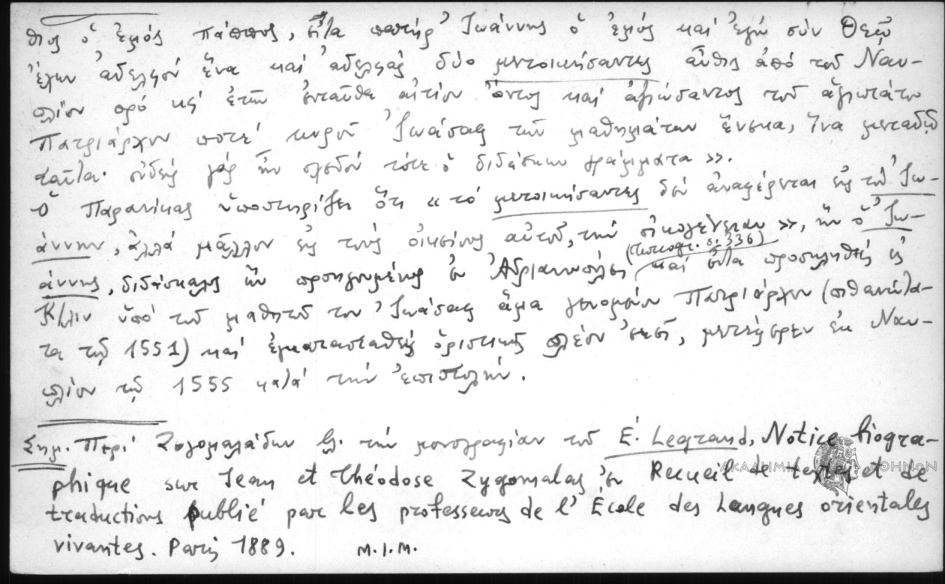 θιος ὁ ἐμός πάππος, εἶτα πατήρ Ἰωάννης ὁ ἐμός καί ἐγώ σύν Θεῷ
ἔχων ἀδελφόν ἕνα καί ἀδελφάς δύο μετοικήσαντες αὖθις ἀπό τοῦ Ναυ-
πλίου πρό κς' ἐτῶν ἐνταῦθα αἰτίου ὄντος καί ἀξιώσαντος τοῦ ἁγιωτάτου
Πατριάρχου ποτέ κυροῦ Ἰωάσαφ τῶν μαθημάτων ἕνεκα, ἵνα μεταδῶ
ταῦτα· οὐδείς γάρ ἦν σχεδόν τότε ὁ διδάσκων γράμματα».
Ὁ Παρανίκας ὑποστηρίζει ὅτι «τό μετοικήσαντες δέν ἀναφέρεται εἰς τόν Ἰω-
άννην, ἀλλά μᾶλλον εἰς τούς οἰκείους αὐτοῦ, τήν οἰκογένειαν», ἦν ὁ Ἰω-
άννης, διδάσκαλος ὤν προηγουμένως ἐν Ἀδριανουπόλει (Turcogr. σ. 336) καί εἶτα προσκληθείς εἰς
Κ/λιν ὑπό τοῦ μαθητοῦ του Ἰωάσαφ ἅμα γενομένου Πατριάρχου (πιθανώτα-
τα τῷ 1551) καί ἐγκατασταθείς ὁριστικῶς πλέον ἐκεῖ, μετέφερεν ἐκ Ναυ-
πλίου τῷ 1555 κατά τήν ἐπιστολήν.
Σημ. Περί Ζυγομαλάδων βλ. τήν μονογραφίαν τοῦ É. Legrand, Notice biogra-
phique sur Jean et Théodose Zygomalas, ἐν Recueil de textes et de
traductions publié par les professeurs de l' École des Langues orientales
vivantes. Paris 1889. M.I.M.
ΑΚΑΔΗΜΙΑ ΑΘΗΝΩΝ